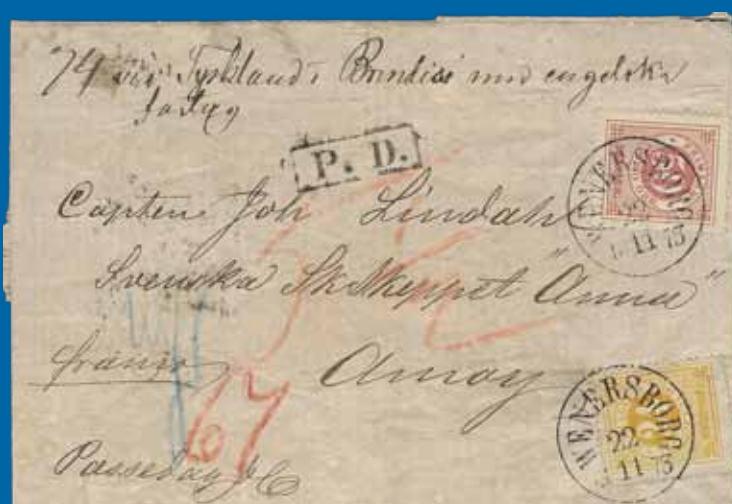 74 via Tyskland & Brindisi med engelska
fartyg
P. D.
WENERSBORG
22
11 75
Capten Joh Lindah
Svenska Sk. Skeppet "Anna"
franco
Amoy
67
WENERSBORG
22
11 75